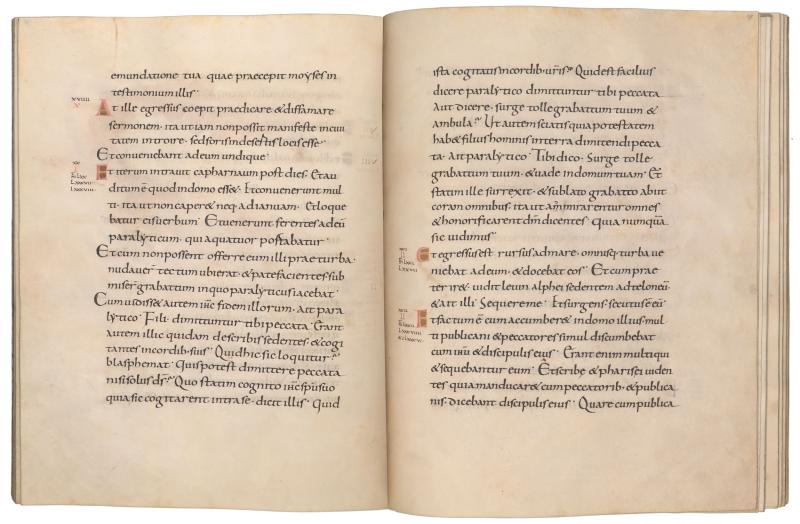 emundatione tua quae praecepit moyses in
testimonium illis·
xviiii
x
At ille egressus coepit praedicare & diffamare
sermonem· ita ut iam non possit manifeste in cuui
tatem introire· sed foris in desertis locis esse·
Et conveniebant ad eum undique·
xx
Et iterum intravit capharnaum post dies· Et au
ditum ē quod in domo ess&· Et convenerunt mul
ti· ita ut non caper& neq· ad ianuam· Et loque
batur eis verbum· Et venerunt ferentes ad eū
paralyticum· qui a quatuor portabatur·
Et cum non possent offerre eum illi prae turba·
nudaver̄ tectum ubi erat· & patefacientes sub
miser̄ grabattum in quo paralyticus iacebat·
Cum vidiss& autem ihc̄ fidem illorum· ait para
lytico· Fili· dimittuntur tibi peccata· Erant
autem illic quidam de scribis sedentes· & cogi
tantes in cordib· suis· Quid hic sic loquitur·
blasphemat· Quis potest dimittere peccata
nisi solus ds̄· Quo statim cognito ihc̄ spu suo
quia sic cogitarent intra se· dicit illis· Quid
ista cogitatis in cordib· vr̄is· Quid est facilius
dicere paralytico dimittuntur tibi peccata
aut dicere· surge tolle grabattum tuum &
ambula· Ut autem sciatis quia potestatem
hab& filius hominis in terra dimittendi pecca
ta· Ait paralytico· Tibi dico· Surge tolle
grabattum tuum· & vade in domum tuam· Et
statim ille surrexit· & sublato grabatto abiit
coram omnibus· ita ut admirarentur omnes
& honorificarent dm̄ dicentes· Quia numquā
sic vidimus·
Et egressus est rursus ad mare· omnisq· turba ve
niebat ad eum· & docebat eos· Et cum prae
terir&· vidit levin alphei sedentem ad teloneū·
& ait illi· Sequere me· Et surgens secutus ē eū·
Et factum ē cum accumber& in domo illius· mul
ti publicani & peccatores simul discumbebat
cum ihū & discipulis eius· Erant enim multi qui
& sequebantur eum· Et scribe & pharisei viden
tes quia manducar& cum peccatorib· & publica
nis· dicebant discipulis eius· Quare cum publica